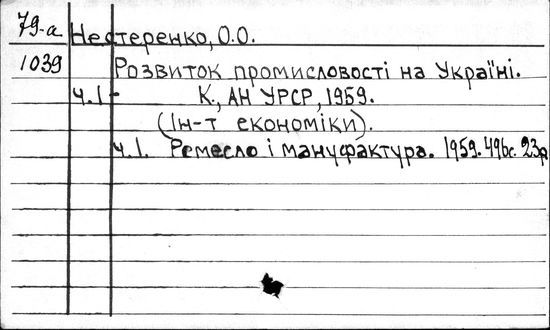 79-а Нестеренко, О.О.
1039 Розвиток промисловості на Україні.
ч.1- К., АН УРСР, 1959.
(Ін-т економіки).
ч.1. Ремесло і мануфактура. 1959. 496с. 23р